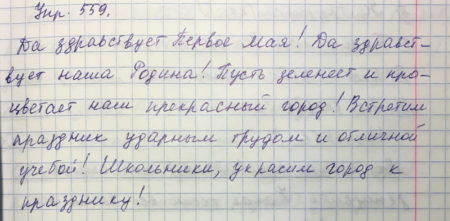 Упр. 559.
Да здравствует Первое Мая! Да здравст-
вует наша Родина! Пусть зеленеет и про-
цветает наш прекрасный город! Встретим
праздник ударным трудом и отличной
учебой! Школьники, украсим город к
празднику!